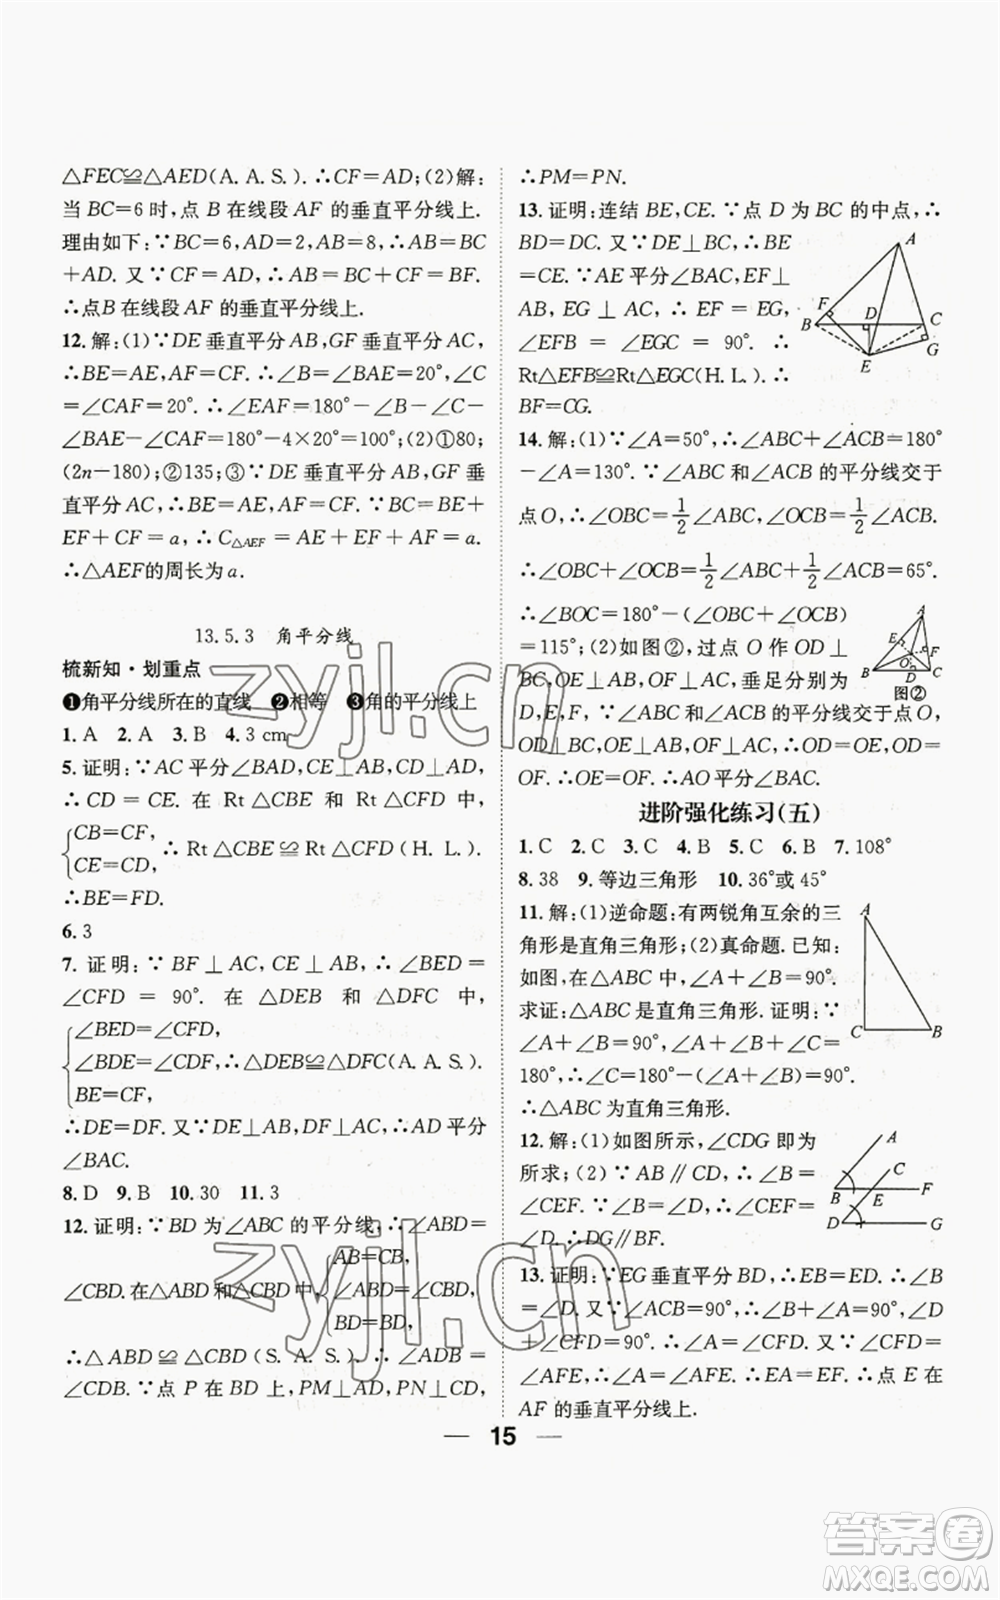 △FEC≌△AED(A. A. S.). ∴CF=AD;(2)解:
当 BC=6 时,点 B 在线段 AF 的垂直平分线上.
理由如下:∵BC=6,AD=2,AB=8,∴AB=BC
+AD. 又∵CF=AD,∴AB=BC+CF=BF.
∴点B在线段 AF 的垂直平分线上.
12. 解:(1)∵DE 垂直平分 AB,GF 垂直平分 AC,
∴BE=AE,AF=CF. ∴∠B=∠BAE=20°,∠C
=∠CAF=20°. ∴∠EAF=180°-∠B-∠C-
∠BAE-∠CAF=180°-4×20°=100°;(2)①80;
(2n-180);②135;③∵DE 垂直平分 AB,GF 垂
直平分 AC,∴BE=AE,AF=CF. ∵BC=BE+
EF+CF=a,∴C△AEF=AE+EF+AF=a.
∴△AEF的周长为a.
13.5.3 角平分线
梳新知·划重点
❶角平分线所在的直线 ❷相等 ❸角的平分线上
1. A 2. A 3. B 4. 3 cm
5. 证明:∵AC 平分∠BAD,CE⊥AB,CD⊥AD,
∴CD=CE. 在 Rt△CBE 和 Rt△CFD 中,
{CB=CF,
CE=CD, ∴Rt△CBE≌Rt△CFD(H. L.).
∴BE=FD.
6. 3
7. 证明:∵BF⊥AC,CE⊥AB,∴∠BED=
∠CFD=90°. 在△DEB 和△DFC 中,
{∠BED=∠CFD,
∠BDE=∠CDF, ∴△DEB≌△DFC(A. A. S.).
BE=CF,
∴DE=DF. 又∵DE⊥AB,DF⊥AC,∴AD 平分
∠BAC.
8. D 9. B 10. 30 11. 3
12. 证明:∵BD 为∠ABC 的平分线,∴∠ABD=
∠CBD. 在△ABD 和△CBD 中, {AB=CB,
∠ABD=∠CBD,
BD=BD,
∴△ABD≌△CBD(S. A. S.). ∴∠ADB=
∠CDB. ∵点 P 在 BD 上,PM⊥AD,PN⊥CD,
∴PM=PN.
13. 证明:连结 BE,CE. ∵点 D 为 BC 的中点,∴
BD=DC. 又∵DE⊥BC,∴BE
=CE. ∵AE 平分∠BAC,EF⊥
AB,EG⊥AC,∴EF=EG,
∠EFB=∠EGC=90°. ∴
Rt△EFB≌Rt△EGC(H. L.). ∴
BF=CG.
A
F
B
D
C
E
G
14. 解:(1)∵∠A=50°,∴∠ABC+∠ACB=180°
-∠A=130°. ∵∠ABC 和∠ACB 的平分线交于
点O,∴∠OBC=1/2∠ABC,∠OCB=1/2∠ACB.
∴∠OBC+∠OCB=1/2(∠ABC+∠ACB)=65°.
∴∠BOC=180°-(∠OBC+∠OCB)
=115°;(2)如图②,过点 O 作 OD⊥
BC,OE⊥AB,OF⊥AC,垂足分别为
D,E,F,∵∠ABC 和∠ACB 的平分线交于点 O,
OD⊥BC,OE⊥AB,OF⊥AC,∴OD=OE,OD=
OF. ∴OE=OF. ∴AO 平分∠BAC.
A
E
F
O
B
D
C
图②
进阶强化练习(五)
1. C 2. C 3. C 4. B 5. C 6. B 7. 108°
8. 38 9. 等边三角形 10. 36°或 45°
11. 解:(1)逆命题:有两锐角互余的三
角形是直角三角形;(2)真命题. 已知:
如图,在△ABC 中,∠A+∠B=90°.
求证:△ABC 是直角三角形. 证明:∵
∠A+∠B=90°,∠A+∠B+∠C=
180°,∴∠C=180°-(∠A+∠B)=90°.
∴△ABC 为直角三角形.
A
C
B
12. 解:(1)如图所示,∠CDG 即为
所求;(2)∵AB∥CD,∴∠B=
∠CEF. ∵∠B=∠D,∴∠CEF=
∠D. ∴DG∥BF.
A
C
B
E
F
D
G
13. 证明:∵EG 垂直平分 BD,∴EB=ED. ∴∠B
=∠D. 又∵∠ACB=90°,∴∠B+∠A=90°,∠D
+∠CFD=90°. ∴∠A=∠CFD. 又∵∠CFD=
∠AFE,∴∠A=∠AFE. ∴EA=EF. ∴点 E 在
AF 的垂直平分线上.
— 15 —
zyjl.cn
zyjl.cn
答案圈
MXQE.COM